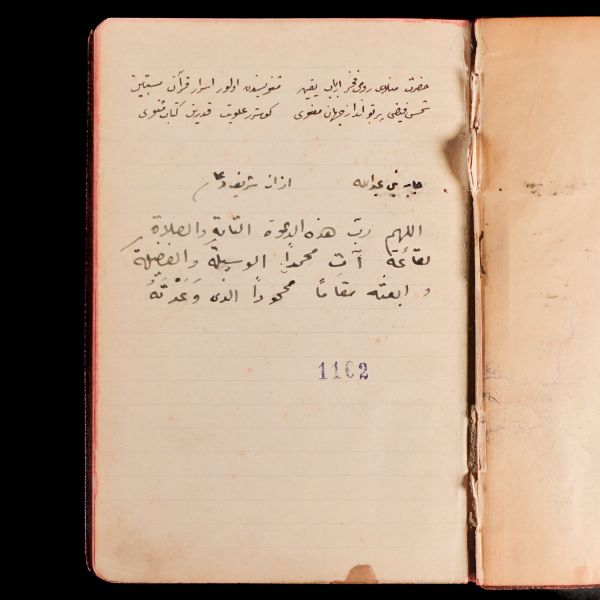 حضرت منلای رومی فخر ارباب یقین مثنویسنده اولور اسرار قرآن مستبین
شمس فیضی پرتو انداز جهان معنوی کوستر علویت قدرین کتاب مثنوی
جابر بن عبدالله اذان شریف دعا
اللهم رب هذه الدعوة التامة والصلاة
القائمة آت محمدًا الوسيلة والفضيلة
و ابعثه مقامًا محمودًا الذى وَعَدْتَهُ
1102